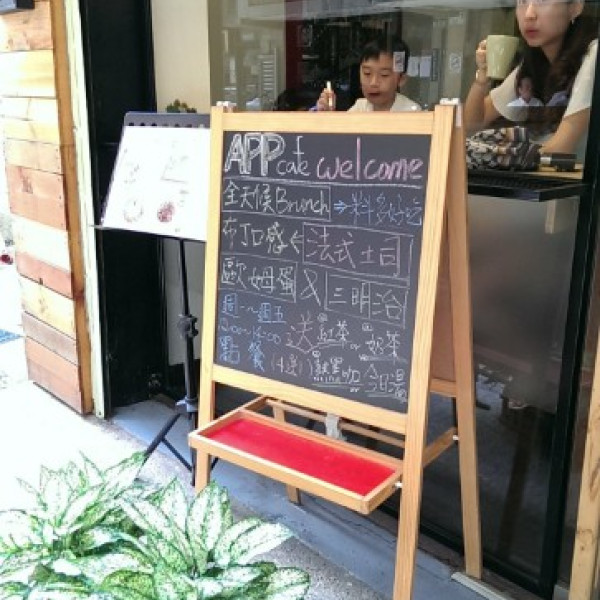 APP cafe welcome
全天候Brunch → 料多好吃
布丁口感 ← 法式土司
歐姆蛋 & 三明治
週一~週五
12:00~14:00 送 紅茶 or 奶茶
點餐 (4選1) 黑咖 今日湯